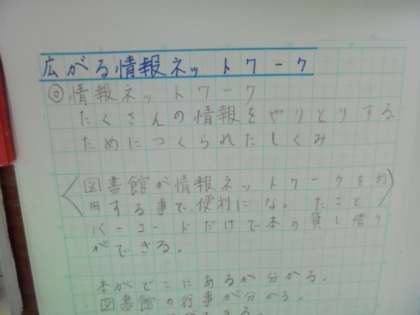 広がる情報ネットワーク
◎情報ネットワーク
たくさんの情報をやりとりする
ためにつくられたしくみ
〈図書館が情報ネットワークを利
用する事で便利になったこと〉
バーコードだけで本の貸し借り
ができる。
本がどこにあるか分かる。
図書館の行事が分かる。